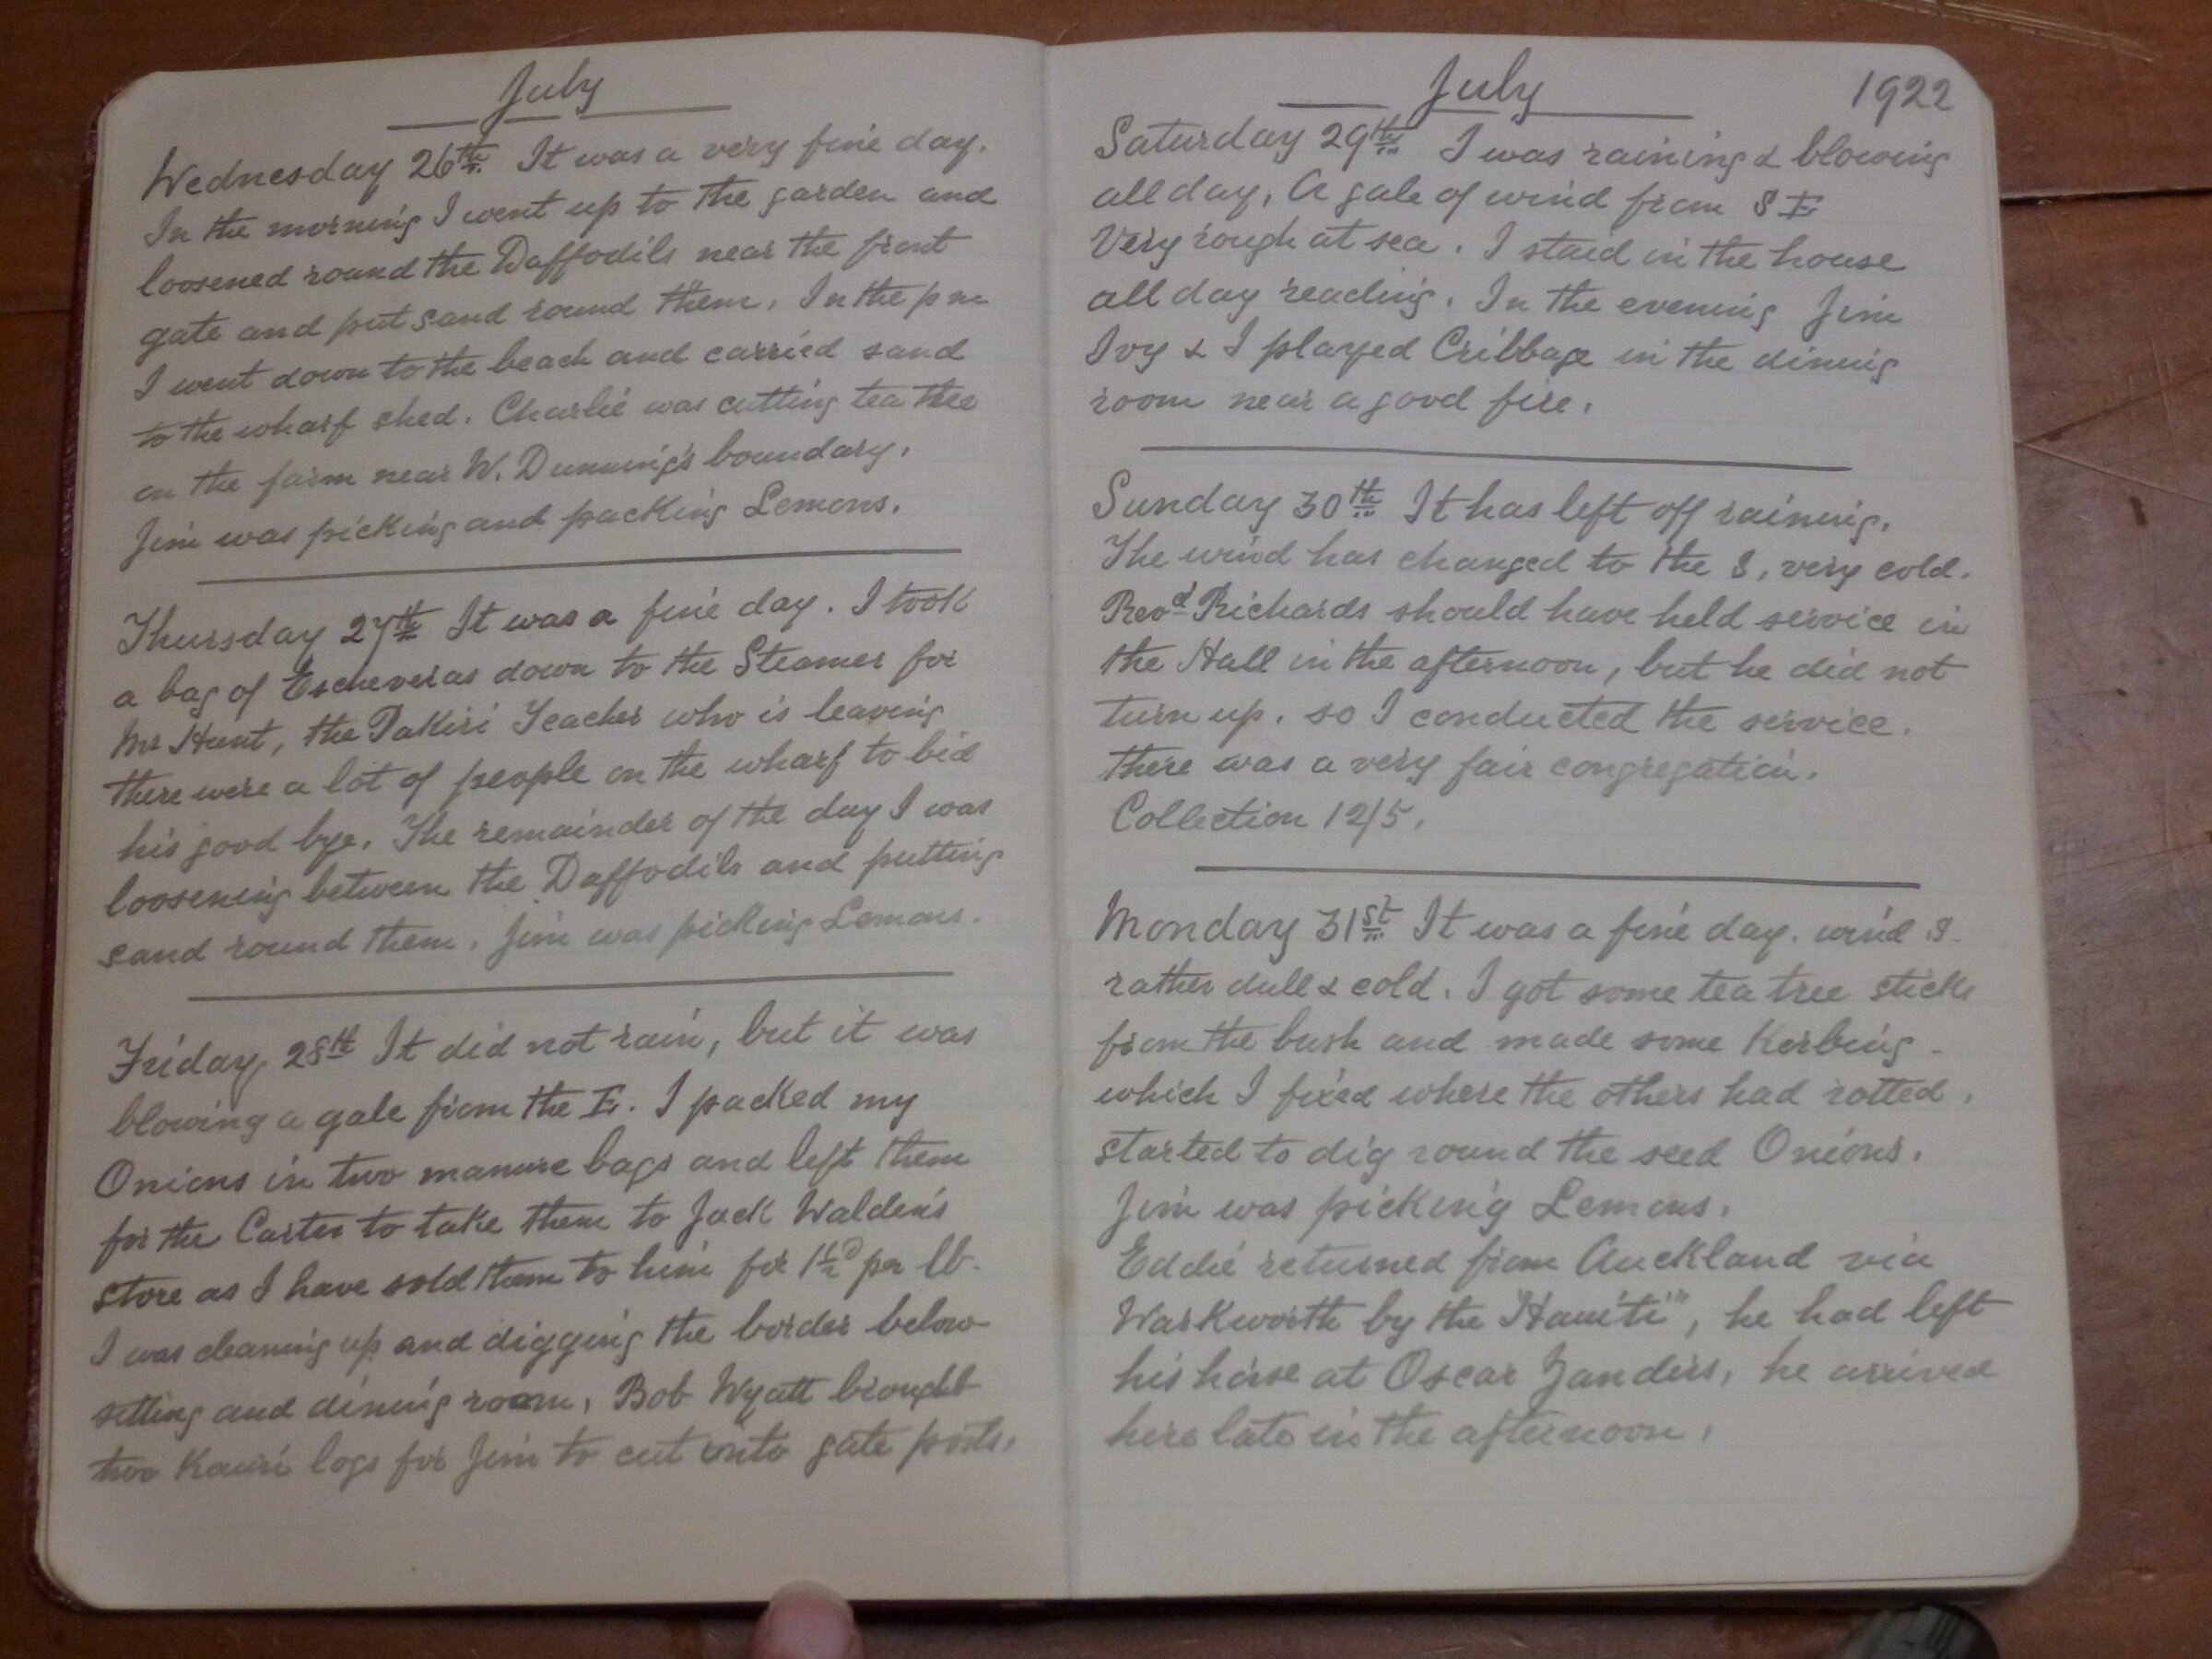 July
Wednesday 26th. It was a very fine day.
In the morning I went up to the garden and
loosened round the Daffodils near the front
gate and put sand round them. In the pm
I went down to the beach and carried sand
to the wharf shed. Charlie was cutting tea tree
on the farm near W. Dunning's boundary.
Jim was picking and packing Lemons.
Thursday 27th It was a fine day. I took
a bag of Escheverias down to the Steamer for
Mr Hunt, the Pakiri Teacher who is leaving
there were a lot of people on the wharf to bid
his good bye. The remainder of the day I was
loosening between the Daffodils and putting
sand round them. Jim was picking Lemons.
Friday 28th It did not rain, but it was
blowing a gale from the E. I packed my
Onions in two manure bags and left them
for the Carter to take them to Jack Walden's
store as I have sold them to him for 1½D per lb.
I was cleaning up and digging the border below
sitting and dining room, Bob Wyatt brought
two Kauri logs for Jim to cut into gate posts.
July 1922
Saturday 29th I was raining & blowing
all day, A gale of wind from S E
Very rough at sea. I staid in the house
all day reading. In the evening Jim
Ivy & I played Cribbage in the dining
room near a good fire.
Sunday 30th It has left off raining.
The wind has changed to the S, very cold.
Revd Richards should have held service in
the Hall in the afternoon, but he did not
turn up. so I conducted the service.
there was a very fair congregation.
Collection 12/5.
Monday 31st It was a fine day. wind S.
rather dull & cold. I got some tea tree sticks
from the bush and made some Kerbing
which I fixed where the others had rotted.
started to dig round the seed Onions.
Jim was picking Lemons.
Eddie returned from Auckland via
Warkworth by the "Hauiti", he had left
his horse at Oscar Zanders, he arrived
here late in the afternoon.